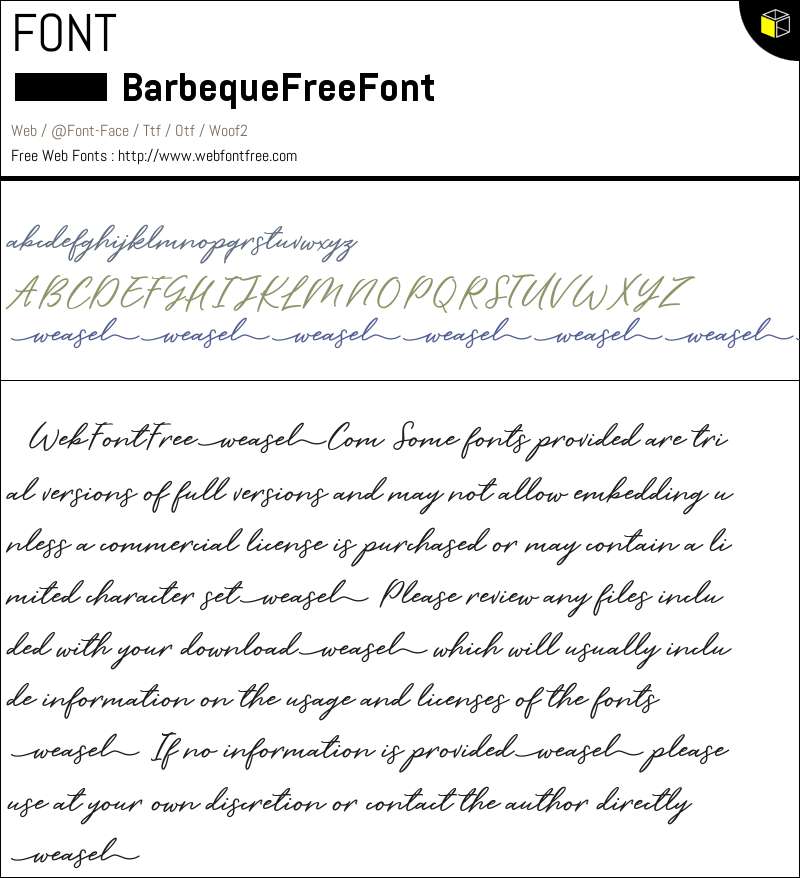 FONT
BarbequeFreeFont
Web / @Font-Face / Ttf / Otf / Woof2
Free Web Fonts : http://www.webfontfree.com
abcdefghijklmnopqrstuvwxyz
ABCDEFGHIJKLMNOPQRSTUVWXYZ
weasel weasel weasel weasel weasel weasel
WebFontFree weasel Com Some fonts provided are tri
al versions of full versions and may not allow embedding u
nless a commercial license is purchased or may contain a li
mited character set weasel Please review any files inclu
ded with your download weasel which will usually inclu
de information on the usage and licenses of the fonts
weasel If no information is provided weasel please
use at your own discretion or contact the author directly
weasel